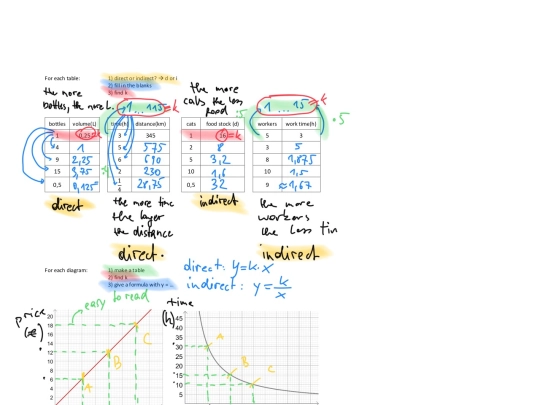 For each table:
1) direct or indirect? → d or i
2) fill in the blanks
3) find k
the more
bottles, the more L.
1 ... 115 = k
the more
cats the less
food
:5
1 ... 15 = k
·5
bottles volume(L)
1 0,25 = k
4 1
9 2,25
15 3,75
0,5 0,125
direct
time(h) distance(km)
3 345
5 575
6 690
2 230
1/4 28,75
the more time
the larger
the distance
direct.
cats food stock (d)
1 16 = k
2 8
5 3,2
10 1,6
0,5 32
indirect
workers work time(h)
5 3
3 5
8 1,875
10 1,5
9 ≈ 1,67
the more
workers
the less tim
indirect
For each diagram:
1) make a table
2) find k
3) give a formula with y = ...
direct: y=k·x
indirect: y=k/x
easy to read
price
(€)
20
18
16
14
12
10
8
6
4
2
A
B
C
time
(h)
45
40
35
30
25
20
15
10
5
A
B
C